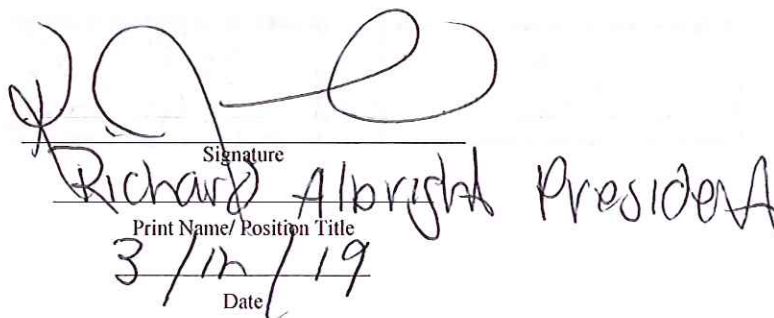 Signature
Richard Albright President
Print Name/ Position Title
3/12/19
Date